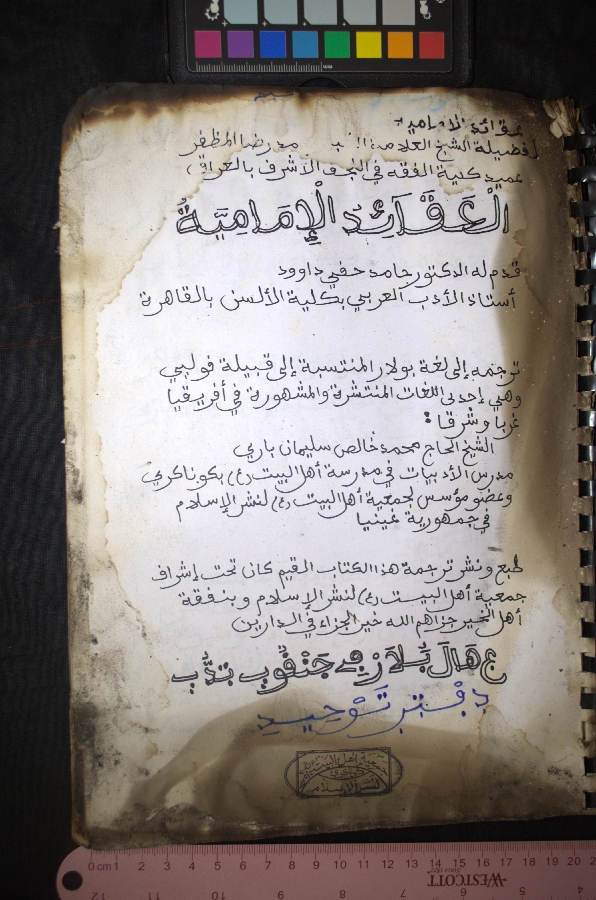 عقائد الإمامية
لفضيلة الشيخ العلامة رضا المظفر
عميد كلية الفقه في النجف الأشرف بالعراق)
الْعَقَائِدُ الْإِمَامِيَّةُ
قدم له الدكتور حامد حفني داوود
أستاذ الأدب العربي بكلية الألسن بالقاهرة
ترجمه إلى لغة بولار المنتسبة إلى قبيلة فولبي
وهي إحدى اللغات المنتشرة والمشهورة في أفريقيا
غربا وشرقا:
الشيخ الحاج محمد خالص سليمان باري
مدرس الأدبيات في مدرسة أهل البيت (ع) بكوناكري
وعضو مؤسس لجمعية أهل البيت (ع) لنشر الإسلام
في جمهورية غينيا
طبع ونشر ترجمة هذا الكتاب القيم كان تحت إشراف
جمعية أهل البيت (ع) لنشر الإسلام وبنفقة
أهل الخير جزاهم الله خير الجزاء في الدارين
دفتر توحيد
جمعية أهل البيت
لنشر الإسلام
0 cm 1 2 3 4 5 6 7 8 9 10 11 12 13 14 15 16 17 18 19 20 21
WESTCOTT